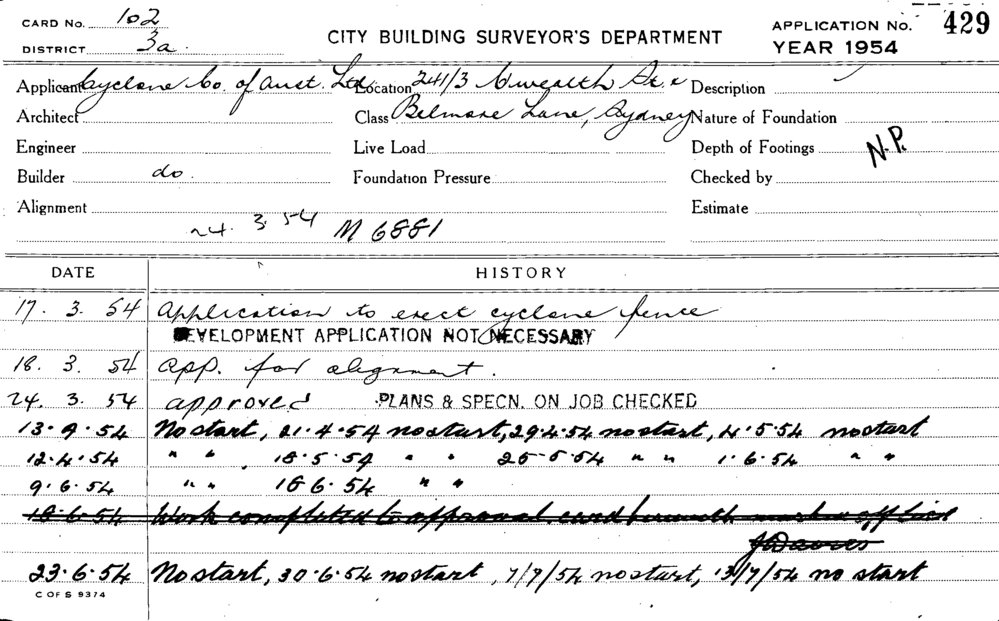 CARD No. 102
DISTRICT 3a
CITY BUILDING SURVEYOR'S DEPARTMENT
APPLICATION No. 429
YEAR 1954
Applicant Cyclone Co. of Aust. Ltd. Location 241/3 C'wealth St. & Description
Architect Class Belmore Lane, Sydney Nature of Foundation
Engineer Live Load Depth of Footings N.P.
Builder do. Foundation Pressure Checked by
Alignment Estimate
24. 3. 54 M 6881
DATE HISTORY
17. 3. 54 Application to erect cyclone fence
DEVELOPMENT APPLICATION NOT NECESSARY
18. 3. 54 app. for alignment.
24. 3. 54 approved PLANS & SPECN. ON JOB CHECKED
13.9.54 No start, 21.4.54 no start, 29.4.54 no start, 4.5.54 no start
12.4.54 " " 18.5.54 " " 25.5.54 " " 1.6.54 " "
9.6.54 " " 16.6.54 " "
18.6.54 Work completed to approval card herewith marked off
J Davies
23.6.54 No start, 30.6.54 no start, 7/7/54 no start, 13/7/54 no start
C OF S 9374